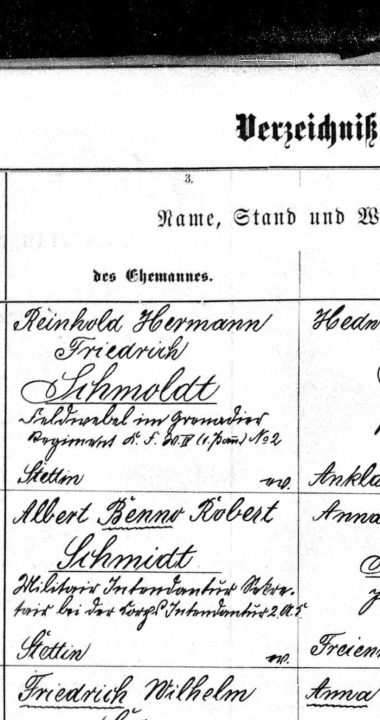 Verzeichniß
3.
Name, Stand und W
des Ehemannes.
Reinhold Hermann
Friedrich
Schmoldt
Feldwebel im Grenadier
Regiment K. F. W. IV (1. Pom) No 2
Stettin ev.
Albert Benno Robert
Schmidt
Militair Intendantur Sekre-
tair bei der Corps Intendantur 2. A.
Stettin ev.
Friedrich Wilhelm
Hedw
Ankla
Anna
Freien
Anna